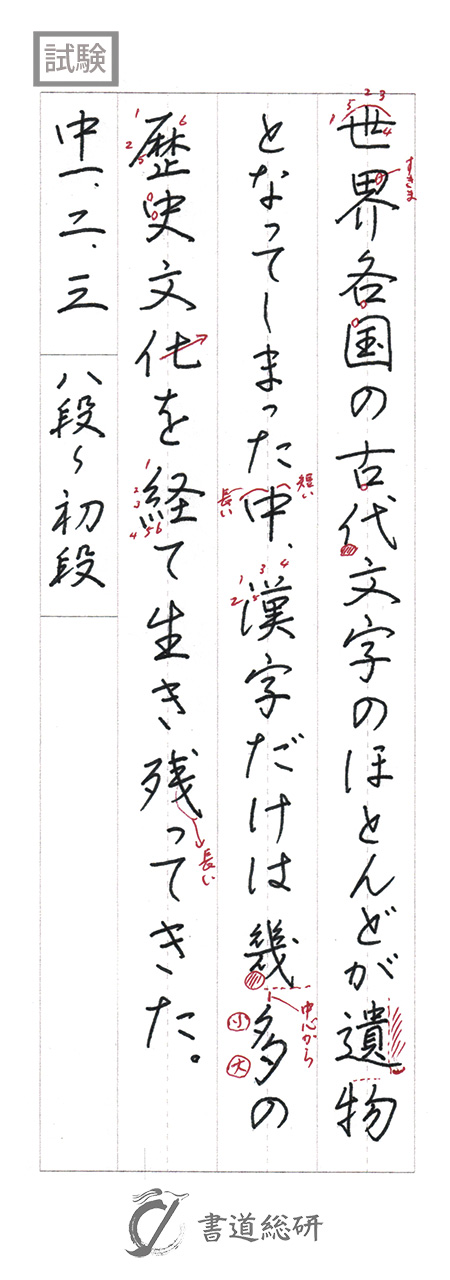 試験
世界各国の古代文字のほとんどが遺物
となってしまった中、漢字だけは幾多の
歴史文化を経て生き残ってきた。
中一、二、三 八段～初段
すきま
短い
長い
中心から
小
大
長い
書道総研